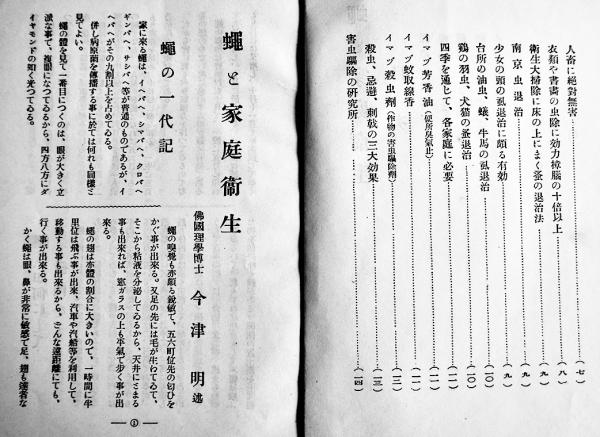 人畜に絶對無害……（七）
衣類や書畫の虫除に効力樟腦の十倍以上……（八）
衛生大掃除に床の上にまく蚤の退治法……（九）
南京虫退治……（九）
少女の頭の虱退治に頗る有効……（九）
台所の油虫、蟻、牛馬の虱退治……（一〇）
鷄の羽虫、犬猫の蚤退治……（一〇）
四季を通じて、各家庭に必要……（一一）
イマヅ芳香油（便所臭氣止）……（一一）
イマヅ蚊取線香……（一二）
イマヅ殺虫劑（作物の害虫驅除劑）……（一三）
殺虫、忌避、刺戟の三大効果……（一三）
害虫驅除の研究所……（一四）
蠅と家庭衞生
佛國理學博士 今津 明 述
蠅の一代記
家に來る蠅は、イヘバヘ、シマバヘ、クロバヘ
ギンバヘ、サシバヘ等が普通のものであるが、イ
ヘバヘがその九割以上を占めてゐる。
併し病原菌を傳播する事に於ては何れも同樣と
見てよい。
蠅の體を見て一番目につくのは、眼が大きく立
派な事で、複眼になつてゐるから、四方八方にダ
イヤモンドの如く光つてゐる。
蠅の嗅覺も亦頗る鋭敏で、五六町位先の匂ひを
かぐ事が出來る。又足の先には毛が生わてゐて、
そこから粘液を分泌してゐるから、天井にとまる
事も出來れば、窓ガラスの上も平氣で歩く事が出
來る。
蠅の翅は赤體の割合に大きいので、一時間に半
里位は飛ぶ事が出來、汽車や汽船等を利用して、
移動する事も出來るから、どんな遠距離にても、
行く事が出來る。
かく蠅は眼、鼻が非常に敏感で足、翅も達者な
— (1) —